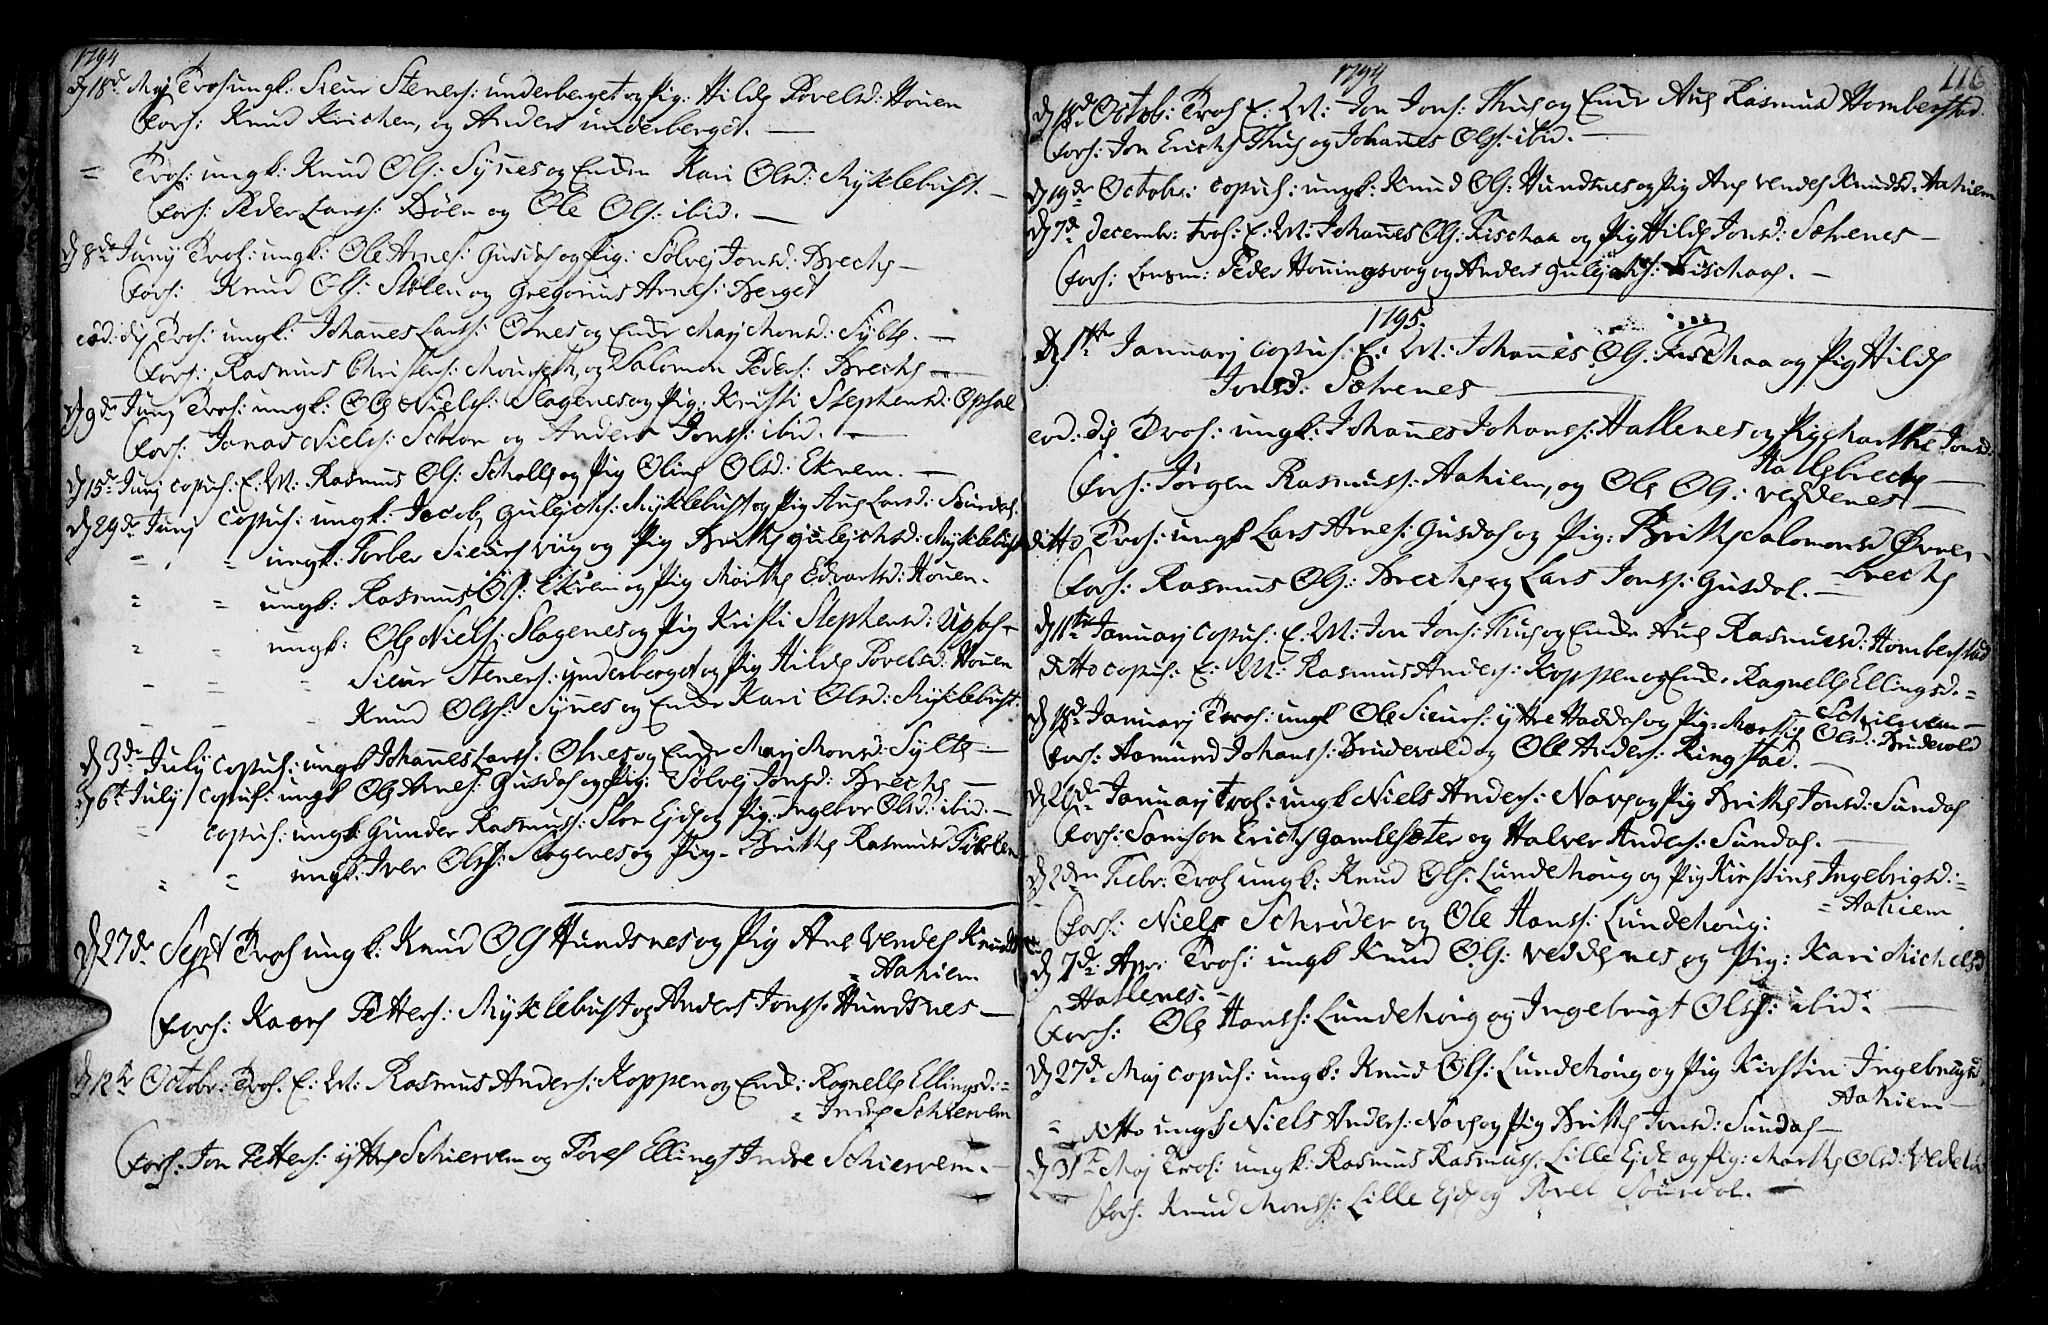 1794
d 18de Maj Trol: ungk: Siur Steners: underberget og Pig: Hilde Povelsd: Houen
Forl: Knud Krichen, og Anders underberget. —
= Trol: ungk: Knud Ols: Synes og Encken Kari Olsd: Myklebust. —
Forl: Peder Larss: Bøen og Ole Ols: ibid. —
d 8de Junij Trol: ungk: Ole Arnes: Gusdal og Pig: Sølvej Jonsd: Brecke —
Forl: Knud Ols: Stølen og Gregorius Arnes: Berget
eod: die Trol: ungk: Johannes Larss: Otnes og Encke Marj Monsd: Sylte. —
Forl: Rasmus Christens: og Salomon Peders: Brecke —
d 9de Junj Trol: ungk: Ole Niels: Slagenes og Pig: Kristi Stephensd: Opsal
Forl: Jonas Niels: og Anders Jonss: ibid. —
d 15de Junj copul: E: M: Rasmus Ols: Scholle og Pig Oline Olsd: Ekrem. —
d 29de Junj copul: ungk: Jacob Gulichs: Myklebust og Pig Ane Larsd: Sourdal.
= = ungk: Torber Siurs: Viig og Pig Britthe Gulichsd: Myklebust
= = ungk: Rasmus Ols: Ekrem og Pig Marthe Edvartsd: Houen.
= = ungk: Ole Niels: Slagenes og Pig Kristi Stephensd: Upsal —
= = Siur Steners: underberget og Pig Hilde Povelsd: Houen
Knud Olss: Synes og Encke Kari Olsd: Myklebust.
d 3de July copul: ungk Johannes Larss: Otnes og Encke Marj Monsd: Sylte —
d 6te July copul: ungk Ole Arnes: Gusdal og Pig: Sølvej Jonsd: Brecke —
= copul: ungk: Gunder Rasmuss: Stor Ejde og Pig: Ingebor Olsd: ibid —
= = ungk: Iver Olss: Slagenes og Pig- Britthe Rasmusd
d 27de Sept Trol ungk: Knud Ols Hundsnes og Pig Ane Vendel Knudsd
= Aahiem
Forl: Petters: Myklebust og Anders Jonss: Hundsnes —
d 12te Octobr: Trol: E: M: Rasmus Anders: Koppen og Enck: Ragnelle Ellingsd: =
= Indre Schiervem
Forl: Jon Petters: Yttre Schiervem og Povel Ellings Indre Schiervem. —
1794 116
d 18de Octob: Trol E: M: Jon Jons: Thue og Encke Ane Rasmusd Homberstad.
Forl: Jon Erichs Thue og Johannes Ols: ibid. —
d 19de Octobr: copul: ungk: Knud Ols: Hundsnes og Pig Ane Vendel Knudsd: Aahiem
d 7de Decembr: trol: E: M: Johannes Ols: Fischaa og Pig Hilde Jonsd: Sætrenes —
Forl: Lensm: Peder Honningsvog og Anders Gulichs: Fischaae. —
1795.
d 1te Januarj copul: E: M: Johannes Ols: Fischaa og Pig Hilde
Jonsd: Sætrenes —
eod: die Trol: ungk: Johannes Johans: Hatlenes og Pig Marthe Jonsd:
Hatlebrecke —
Forl: Jørgen Rasmuss: Aahiem, og Ole Ols: Veddenes —
ditto Trol: ungk Lars Arnes: Gusdal og Pig: Britthe Salomonsd Øvre-
-brecke
Forl: Rasmus Ols: Brecke og Lars Jonss: Gusdal. —
d 11te Januarj copul: E: M: Jon Jons: Thue og Encke Ane Rasmusd: Homberstad
ditto copul: E: M: Rasmus Anders: Koppen og Encke Ragnelle Ellingsd: =
= Schiervem —
d 18de Januarj Trol: ungk Ole Siurs: Yttre Haddal og Pig: Marthe Olsd: Brudevold
Forl: Aamund Johans: Brudevold og Ole Anders: Ringstad. —
Januarj Trol: ungk Niels Anders: Nave og Pig Britthe Jonsd: Sundal
Forl: Samson Erichs Gamlesæter og Halver Anders: Sundal. —
d 2den Febr: Trol ungk: Knud Ols: Lundehoug og Pig Kirstine Ingebrigsd: =
= Aahiem
Forl: Niels Schrøder og Ole Hans: Lundehoug:
d 7de: Apr: Trol: ungk Knud Ols: Veddenes og Pig: Kari Michelsd
Hatlenes. —
Forl: Ole Hans: Lundehoug og Ingebrigt Olss: ibid: —
d 27de Maj copul: ungk: Knud Ols: Lundehoug og Pig Kirstin Ingebrigsd.
Aahiem —
= ditto ungk Niels Anders: Nave og Pig Britthe Jonsd: Sundal —
d 31te Maj Trol: ungk: Rasmus Rasmuss: Lille Ejde og Pig: Marthe Olsd:
Forl: Knud Monss: Lille Ejde og Povel Sourdal. —